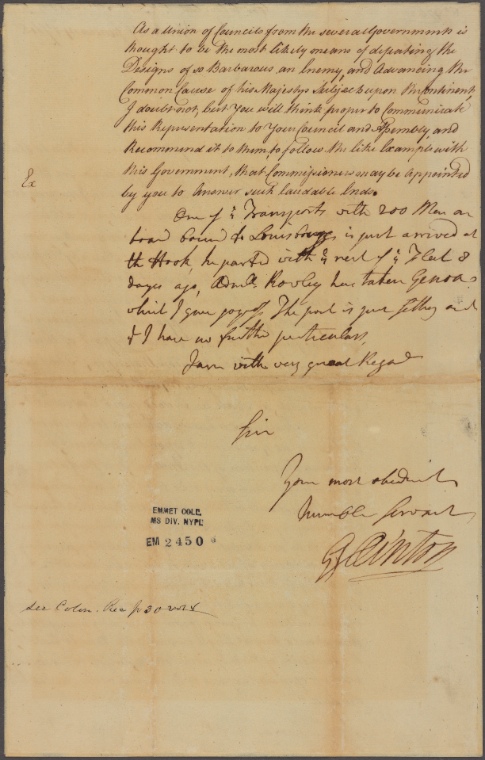 As a Union of Councils from the several Governments is
thought to be the most likely means of defeating the
Designs of so Barbarous an Enemy, and Advancing the
Common Cause of his Majestys Subjects upon the Continent,
I doubt not, but You will think proper to Communicate
this Representation to Your Council and Assembly, and
Recommend it to them, to follow the like Example with
this Government, that Commissioners may be Appointed
by you to Answer such laudable Ends.
One of ye Transports with 200 Men on
board bound to Louisbourg is just arrived at
the Hook, he parted with ye rest of ye Fleet 8
days ago, Adml Rowley has taken Genoa
which I gave The post is just setting out
& I have no further particulars,
I am with very great Regard
Sir
Your most obedient
humble Servant
G Clinton
EMMET COLL.
MS DIV. NYPL
EM 2450
see Colon. Rec p 30 vol